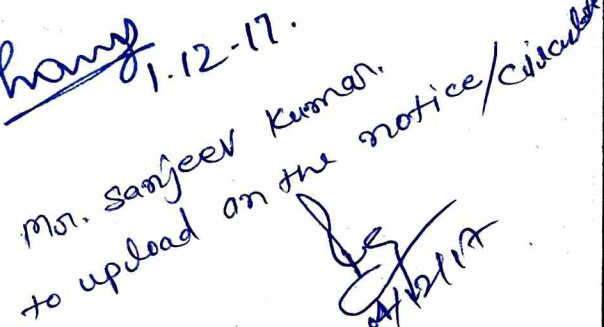 1.12-17.
Mr. Sanjeev Kumar.
to upload on the notice/circular